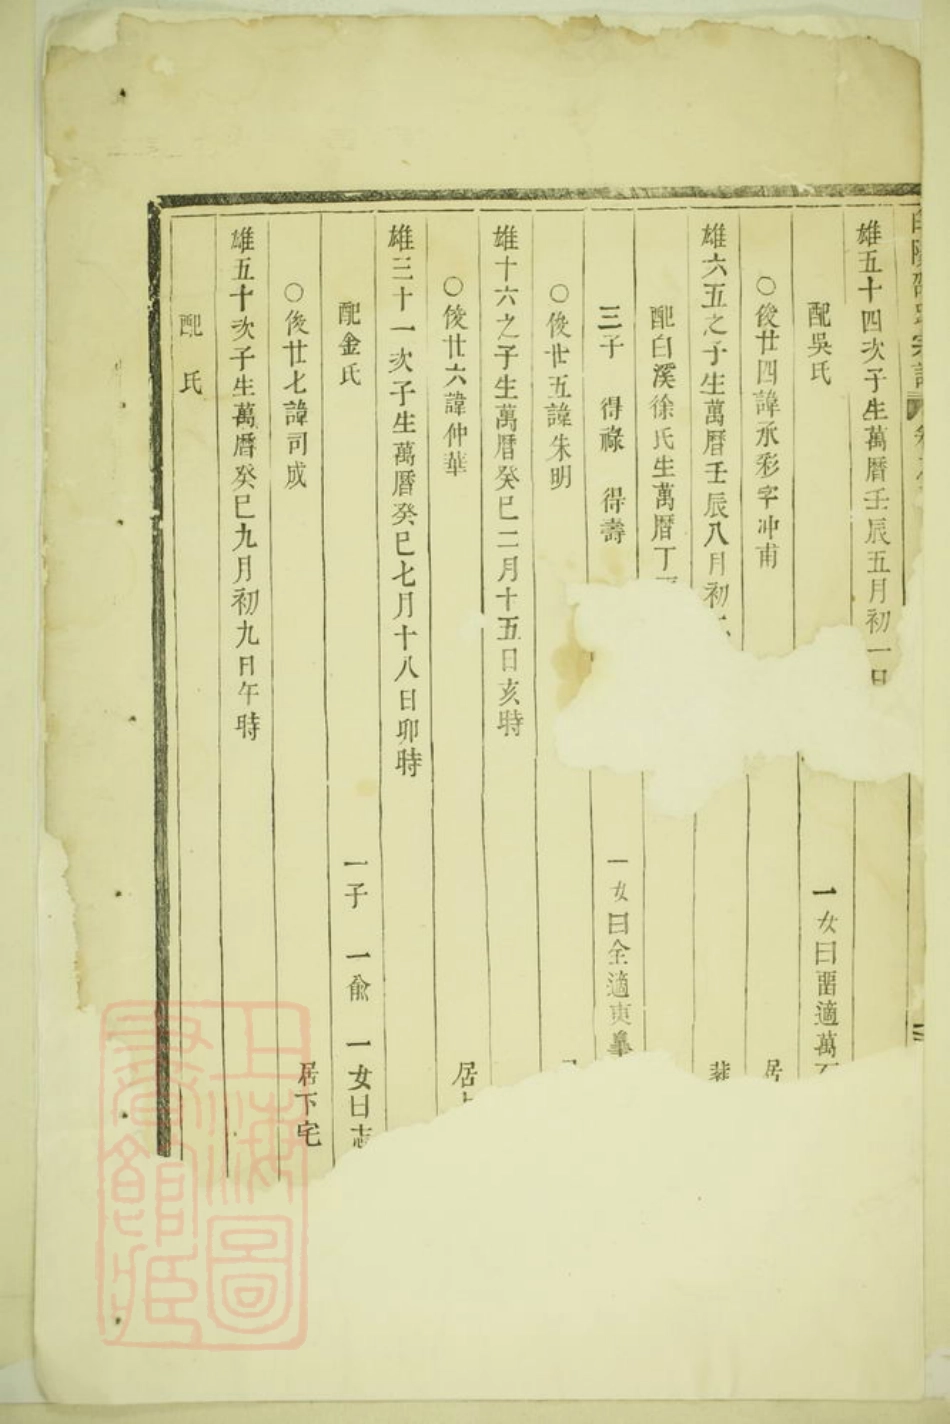 雄五十四次子生萬曆壬辰五月初一日
配吳氏 一女曰畱適萬
○俊廿四諱承彩字冲甫 居
雄六五之子生萬曆壬辰八月初
配白溪徐氏生萬曆丁
三子 得祿 得壽 一女曰全適東
○俊廿五諱朱明
雄十六之子生萬曆癸巳二月十五日亥時
○俊廿六諱仲華 居
雄三十一次子生萬曆癸巳七月十八日卯時
配金氏 一子 一兪 一女曰志
○俊廿七諱司成 居下宅
雄五十次子生萬曆癸巳九月初九日午時
配 氏
上海圖書館藏